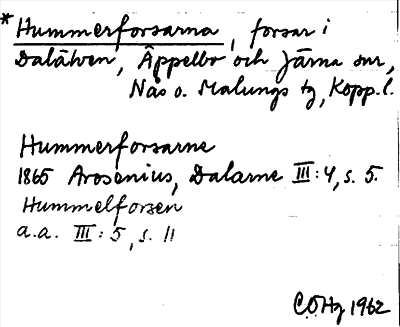 *Hummerforsarna, forsar i
Dalälven, Äppelbo och Järna snr,
Nås o. Malungs tg, Kopp. l.
Hummerforsarne
1865 Arosenius, Dalarne III:4, s. 5.
Hummelforsen
a.a. III:5, s. 11
COHg 1962